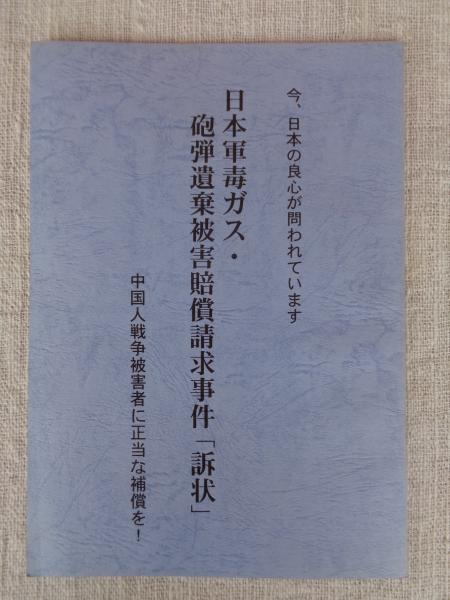 今、日本の良心が問われています
日本軍毒ガス・
砲弾遺棄被害賠償請求事件「訴状」
中国人戦争被害者に正当な補償を！